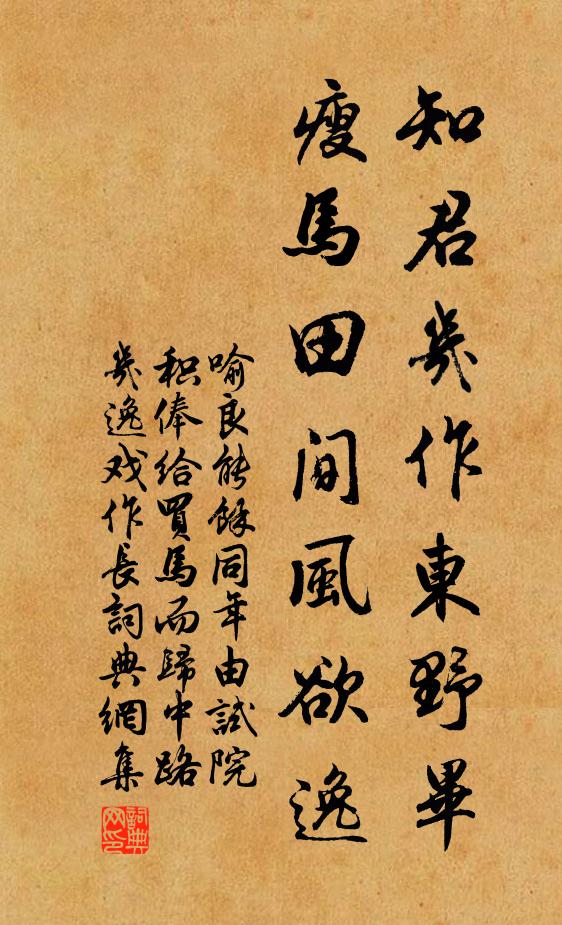 知君幾作東野畢
瘦馬田間風欲逸
喻良能餘同年由試院
积俸给買馬而歸中路
幾逸戏作長詞典網集
詞典
网印